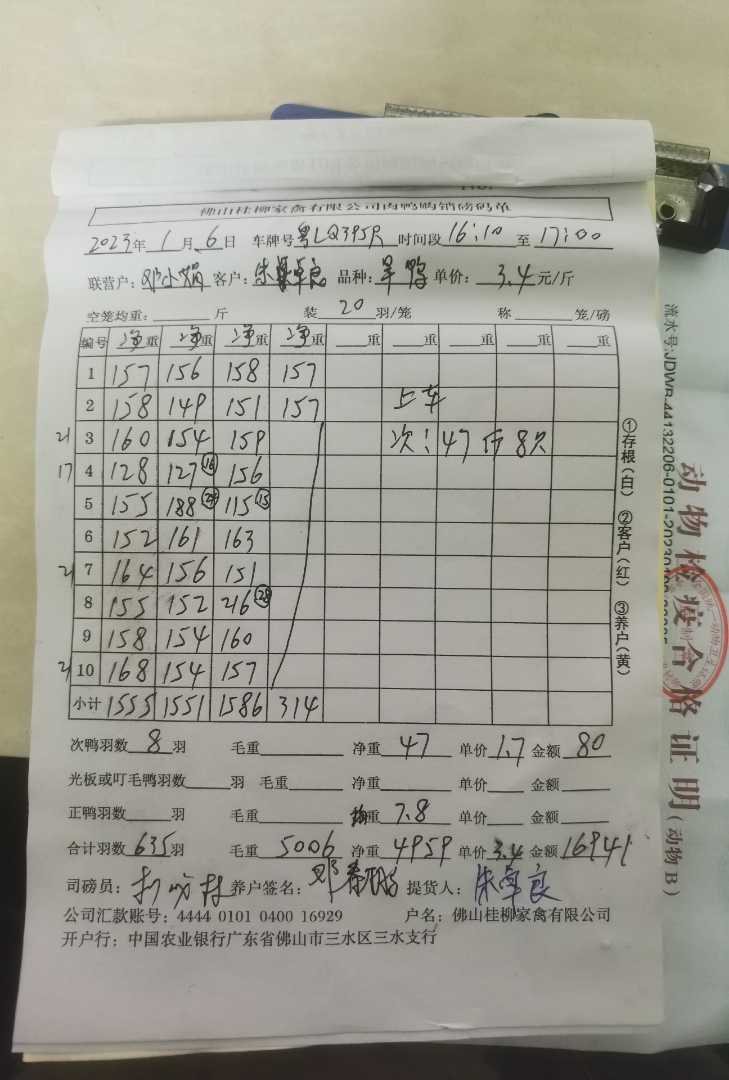 佛山桂柳家禽有限公司肉鸭购销磅码单
2023年 1月 6日 车牌号粤LQ395R 时间段16:10至17:00
联营户:邓小娟 客户:朱卓良 品种: 单价:3.4元/斤
空笼均重:斤 装20羽/笼 称笼/磅
编号 净重 净重 净重 净重 重 重 重 重 重
1 157 156 158 157
2 158 149 151 157 上车
21 3 160 154 159 次:47斤8只
17 4 128 127 16 156
5 155 188 24 115 15
6 152 161 163
21 7 164 156 151
8 155 152 216 28
9 158 154 160
21 10 168 154 157
小计 1555 1551 1586 314
次鸭羽数8羽 毛重 净重47 单价1.7 金额80
光板或叮毛鸭羽数羽 毛重 净重 单价 金额
正鸭羽数羽 毛重 均重7.8 单价 金额
合计羽数635羽 毛重5006 净重4959 单价3.4 金额16941
司磅员: 养户签名: 提货人:朱卓良
公司汇款账号:4444 0101 0400 16929 户名:佛山桂柳家禽有限公司
开户行:中国农业银行广东省佛山市三水区三水支行
①存根(白) ②客户(红) ③养户(黄)
动物检疫合格证明(动物B)